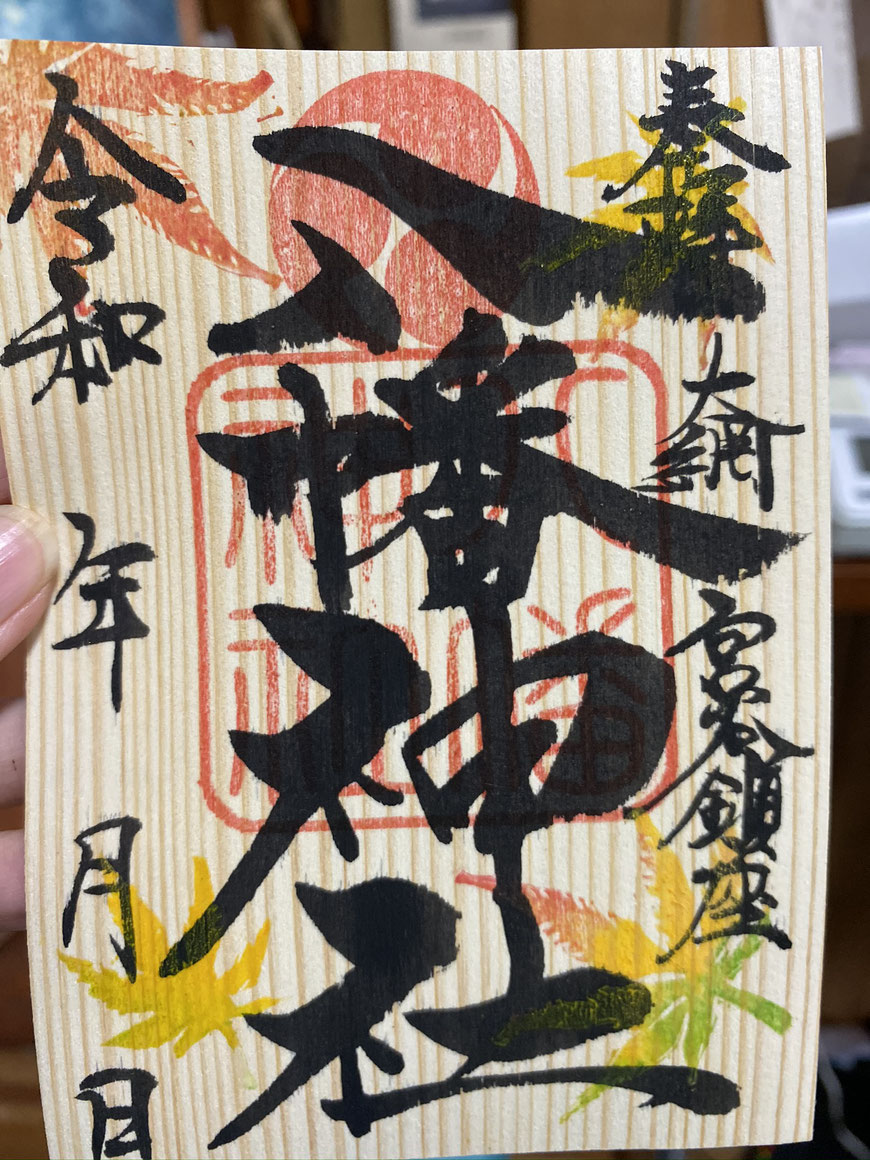 奉拝
大網
鎮座
八幡神社
八幡
神社
令和 年 月 日